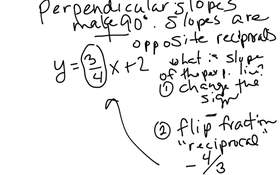 Perpendicular slopes
make 90°. Slopes are
opposite reciprocals
y = 3/4 x + 2
what is slope
of the perp. line?
① change the
sign
② flip fraction
"reciprocal"
- 4/3